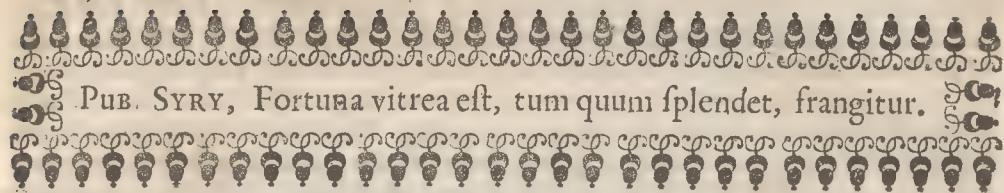 PUB. SYRY, Fortuna vitrea eſt, tum quum ſplendet, frangitur.